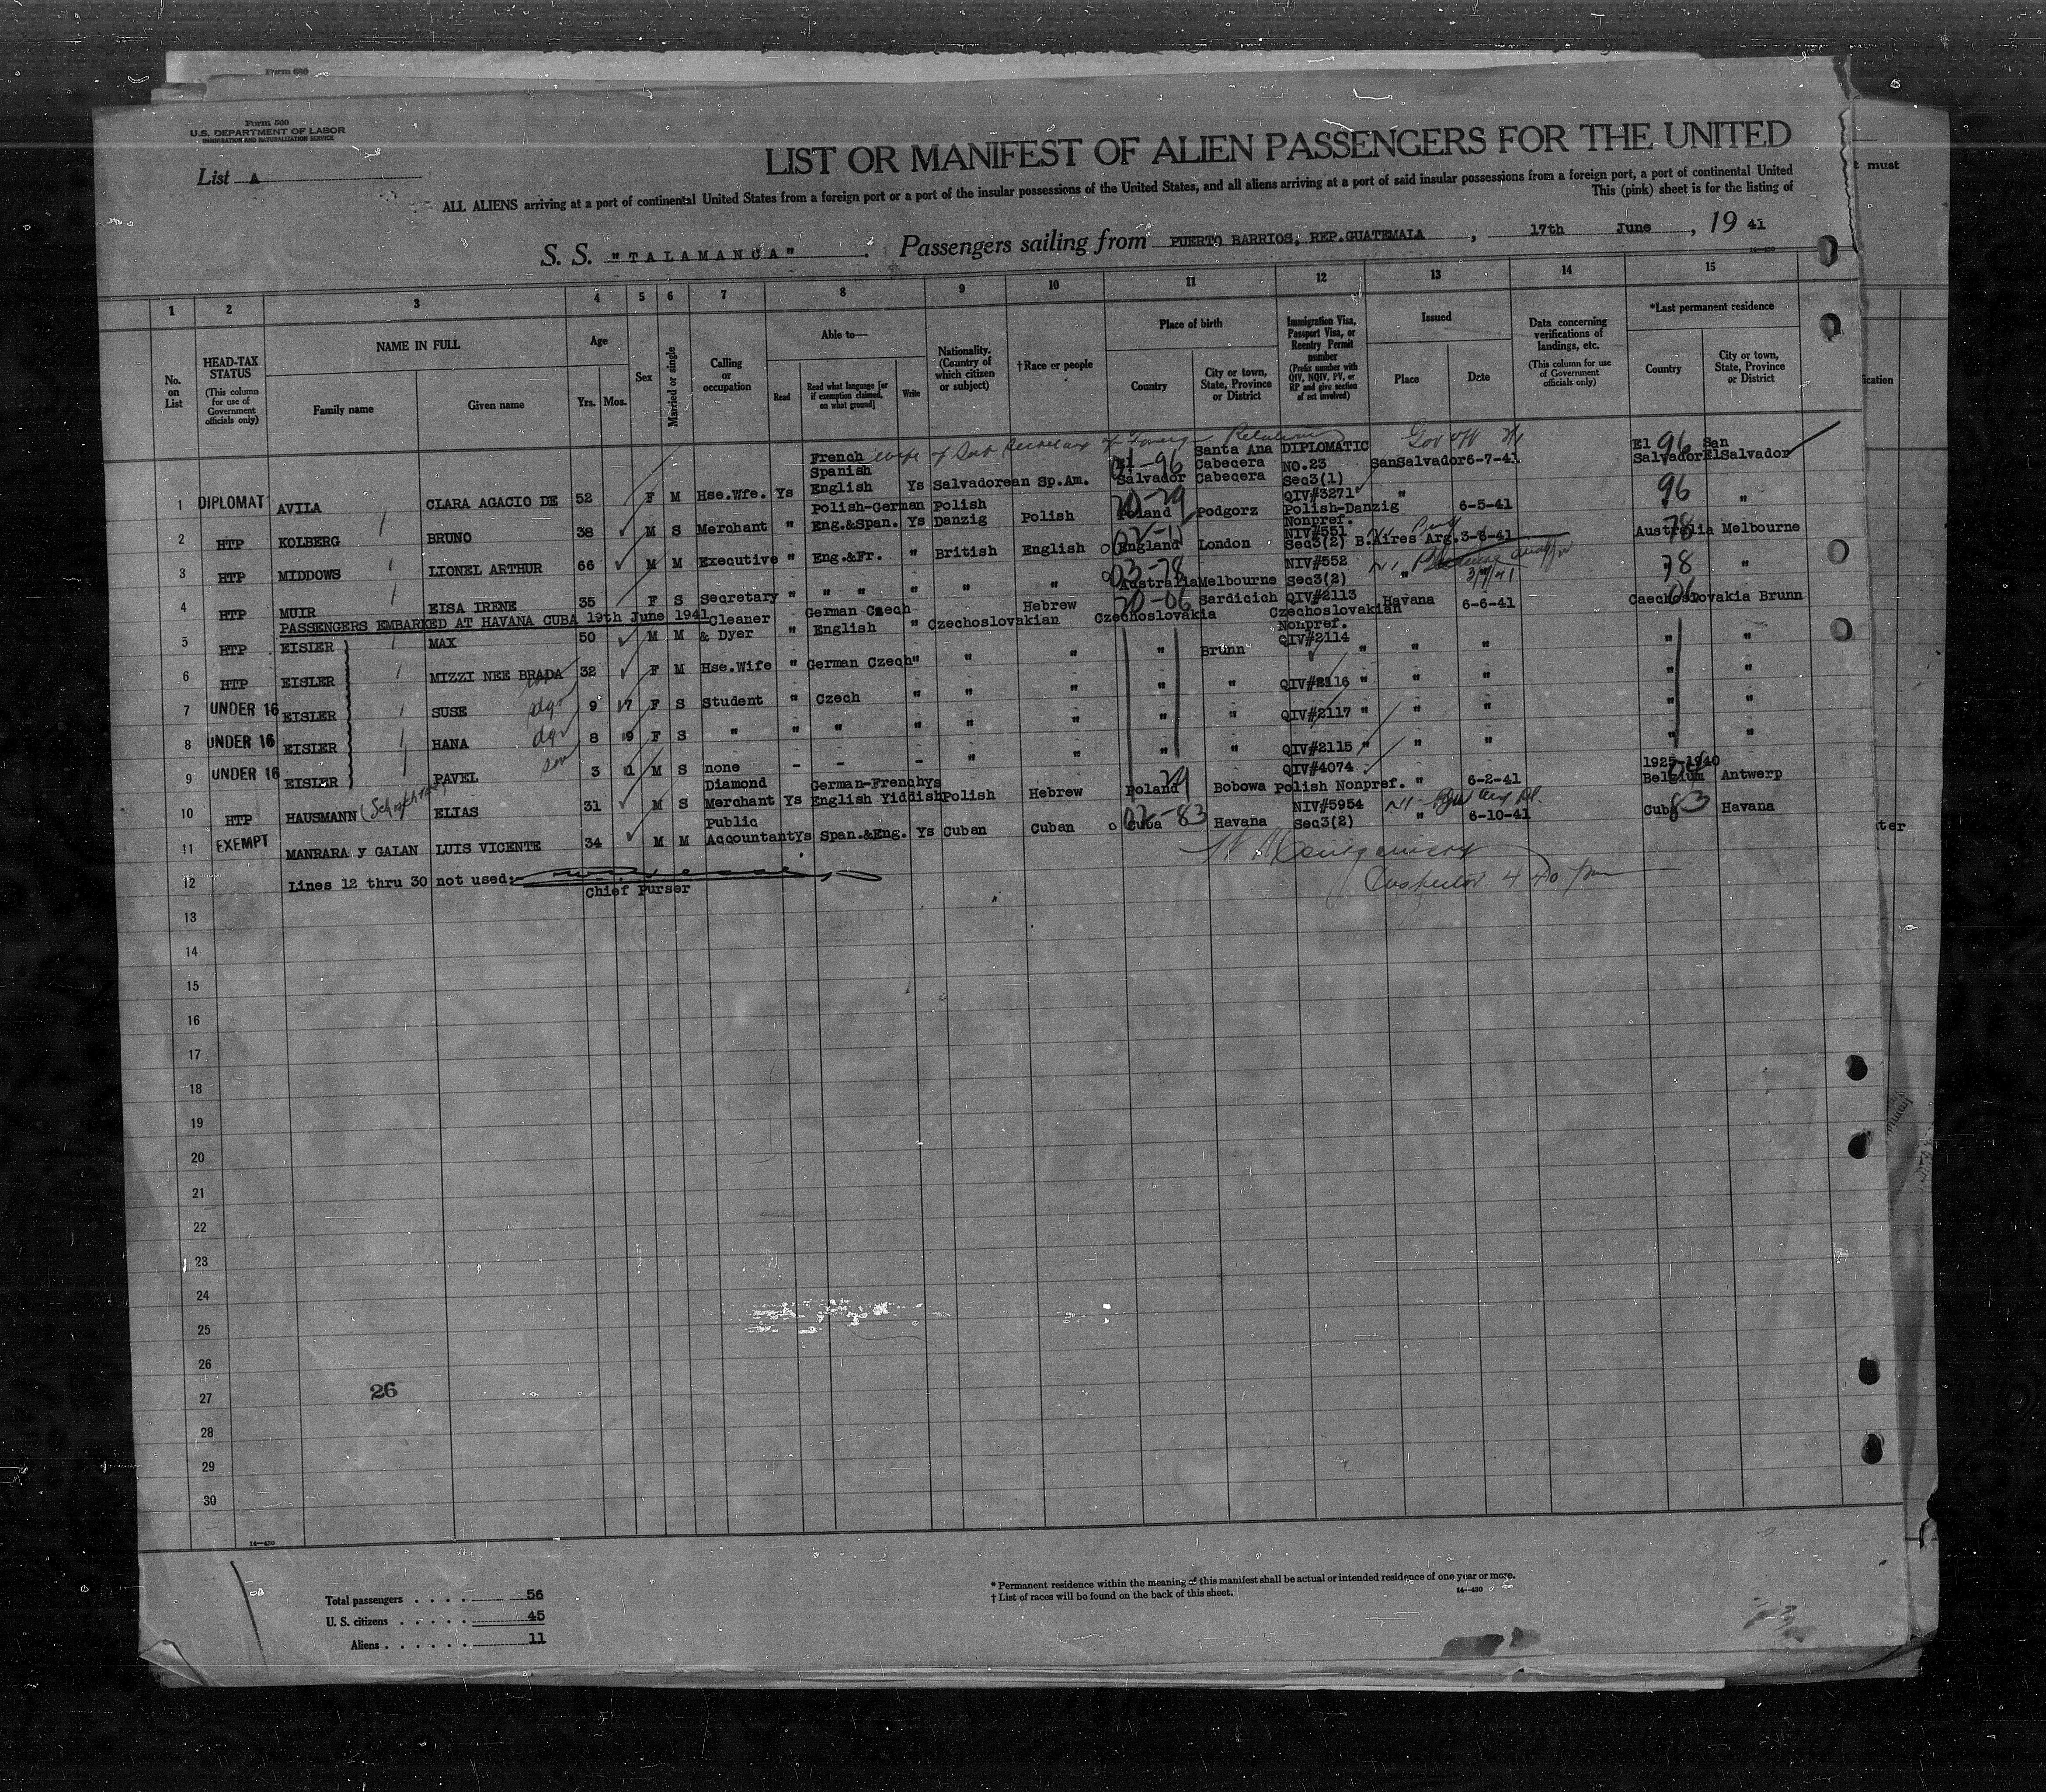 Form 500
Form 500
U.S. DEPARTMENT OF LABOR
IMMIGRATION AND NATURALIZATION SERVICE
List A
LIST OR MANIFEST OF ALIEN PASSENGERS FOR THE UNITED
t must
ALL ALIENS arriving at a port of continental United States from a foreign port or a port of the insular possessions of the United States, and all aliens arriving at a port of said insular possessions from a foreign port, a port of continental United
This (pink) sheet is for the listing of
S. S. "TALAMANCA" Passengers sailing from PUERTO BARRIOS, REP.GUATEMALA, 17th June, 19 41
14—430
1 2 3 4 5 6 7 8 9 10 11 12 13 14 15
No. on List
HEAD-TAX STATUS (This column for use of Government officials only)
NAME IN FULL Family name Given name
Age Yrs. Mos.
Sex
Married or single
Calling or occupation
Able to— Read Read what language [or if exemption claimed, on what ground] Write
Nationality. (Country of which citizen or subject)
†Race or people
Place of birth Country City or town, State, Province or District
Immigration Visa, Passport Visa, or Reentry Permit number (Prefix number with QIV, NQIV, PV, or RP and give section of act involved)
Issued Place Date
Data concerning verifications of landings, etc. (This column for use of Government officials only)
*Last permanent residence Country City or town, State, Province or District
ication
wife of Sub Secretary of Foreign Relations
1 DIPLOMAT AVILA CLARA AGACIO DE 52 F M Hse.Wfe. Ys French Spanish English Ys Salvadorean Sp.Am. El Salvador 01-96 Santa Ana Cabecera Cabecera DIPLOMATIC NO.23 Sec3(1) SanSalvador 6-7-41 El Salvador 96 San ElSalvador
2 HTP KOLBERG BRUNO 38 M S Merchant " Polish-German Eng.&Span. Ys Polish Danzig Polish Poland 20-29 Podgorz QIV#3271 Polish-Danzig Nonpref. " 6-5-41 " 96 "
3 HTP MIDDOWS LIONEL ARTHUR 66 M M Executive " Eng.&Fr. " British English England 02-11 London NIV#551 Sec3(2) B.Aires Arg. 3-6-41 Australia 78 Melbourne
4 HTP MUIR EISA IRENE 35 F S Secretary " " " " " " Australia 03-78 Melbourne NIV#552 Sec3(2) " 3/7/41 78 "
PASSENGERS EMBARKED AT HAVANA CUBA 19th June 1941
5 HTP EISLER MAX 50 M M Cleaner & Dyer " German Czech English " Czechoslovakian Hebrew Czechoslovakia 20-06 Sardicich QIV#2113 Czechoslovakian Nonpref. Havana 6-6-41 Czechoslovakia 06 Brunn
6 HTP EISLER MIZZI NEE BRADA 32 F M Hse.Wife " German Czech " " " " Brunn QIV#2114 " " " " "
7 UNDER 16 EISLER SUSE dgr 9 7 F S Student " Czech " " " " " QIV#2116 " " " " "
8 UNDER 16 EISLER HANA dgr 8 9 F S " " " " " " " " QIV#2117 " " " " "
9 UNDER 16 EISLER PAVEL son 3 1 M S none - - - " " " " QIV#2115 " " " " "
10 HTP HAUSMANN ELIAS 31 M S Diamond Merchant Ys German-French English Yiddish Ys Polish Hebrew Poland 29 Bobowa QIV#4074 Polish Nonpref. " 6-2-41 1925-1940 Belgium Antwerp
11 EXEMPT MANRARA y GALAN LUIS VICENTE 34 M M Public Accountant Ys Span.&Eng. Ys Cuban Cuban Cuba 02-83 Havana NIV#5954 Sec3(2) " 6-10-41 Cuba 83 Havana
12 Lines 12 thru 30 not used:
Chief Purser
Inspector 4 40 pm
ter
13
14
15
16
17
18
19
20
21
22
23
24
25
26
27
26
28
29
30
14—430
Total passengers . . . . 56
U. S. citizens . . . . . 45
Aliens . . . . . . 11
* Permanent residence within the meaning of this manifest shall be actual or intended residence of one year or more.
† List of races will be found on the back of this sheet.
14—430